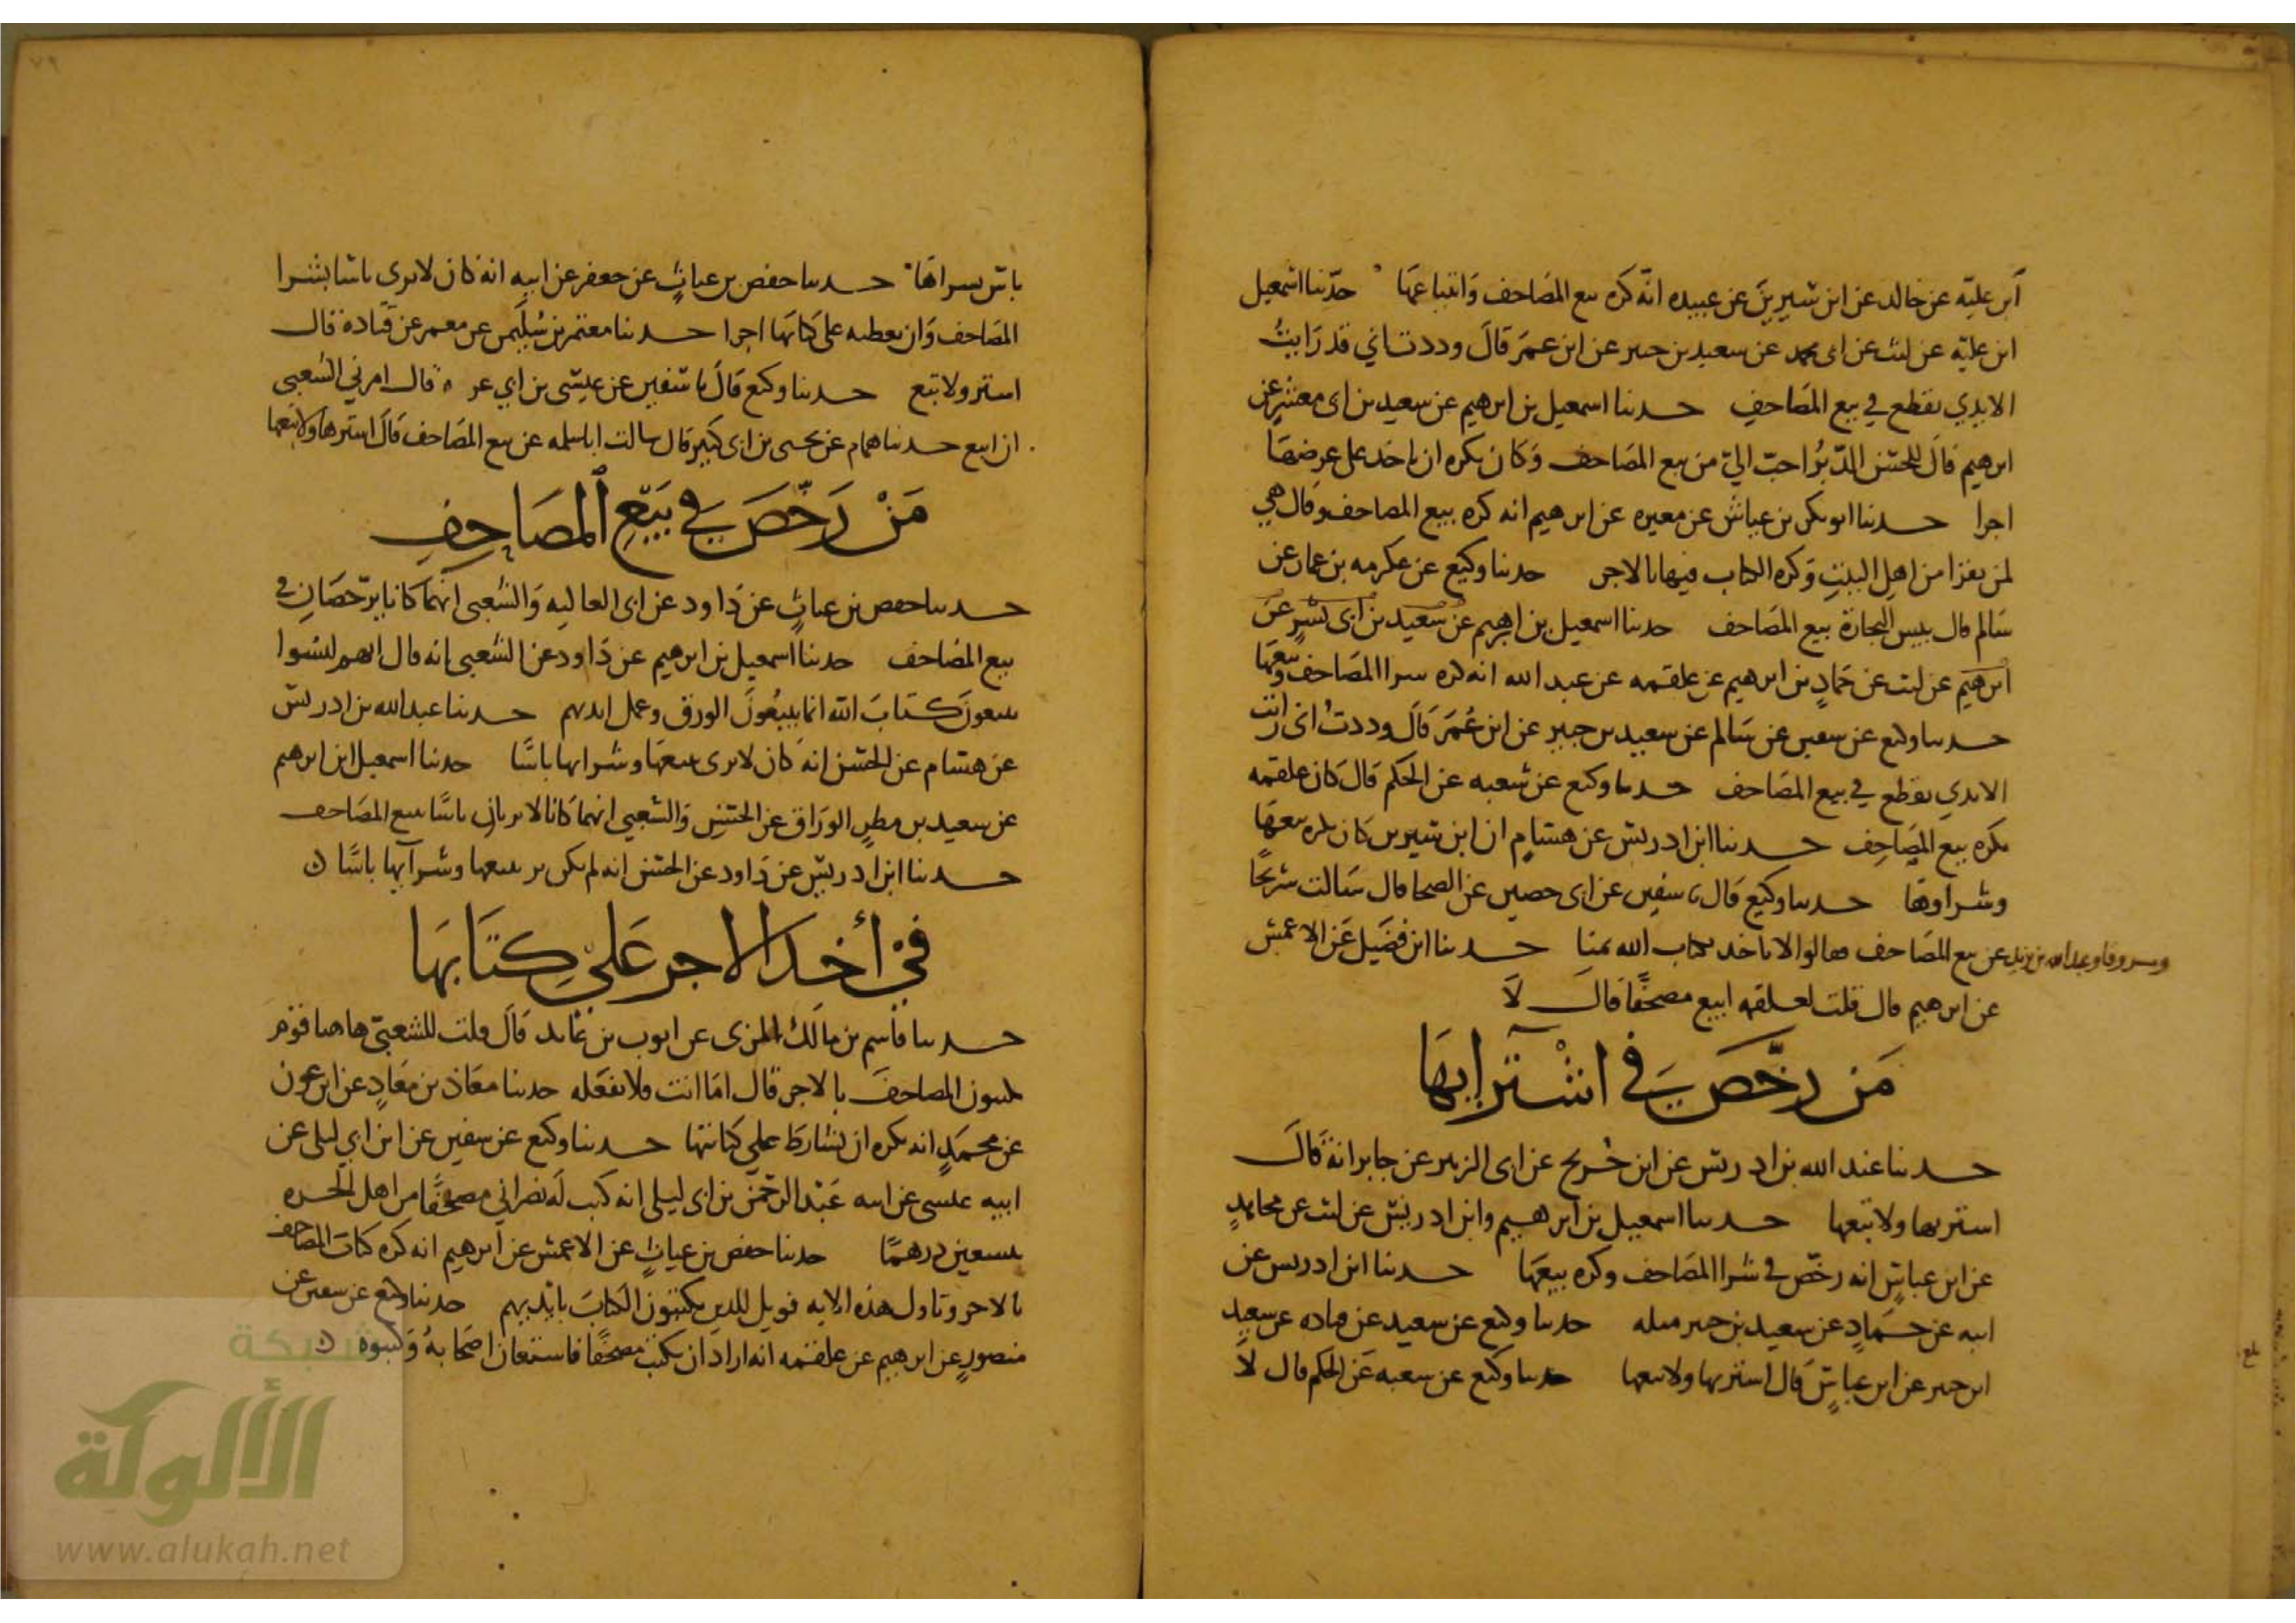 ابن علية عن خالد عن ابن سيرين عن عبيده انه كره بيع المصاحف وابتياعها حدثنا اسمعيل
ابن علية عن ليث عن ابي محمد عن سعيد بن جبير عن ابن عمر قال وددت اني قد رايت
الايدي تقطع في بيع المصاحف حدثنا اسمعيل بن ابرهيم عن سعيد بن ابي معشر عن
ابرهيم قال للحس الدبر احب الي من بيع المصاحف وكان يكره ان ياخذ على عرضها
اجرا حدثنا ابو بكر بن عياش عن مغيره عن ابرهيم انه كره بيع المصاحف وقال هي
لمن يقرا من اهل البيت وكره الكتاب فيها بالاجر حدثنا وكيع عن عكرمه بن عمار عن
سالم قال بيس التجارة بيع المصاحف حدثنا اسمعيل بن ابرهيم عن سعيد بن ابي عن
ابرهيم عن ليث عن حماد بن ابرهيم عن علقمه عن عبد الله انه كره شرا المصاحف وبيعها
حدثنا وكيع عن سفين عن سالم عن سعيد بن جبير عن ابن عمر قال وددت اني رايت
الايدي تقطع في بيع المصاحف حدثنا وكيع عن شعبه عن الحكم قال كان علقمه
يكره بيع المصاحف حدثنا ابن ادريس عن هشام ان ابن سيرين كان يكره بيعها
وشراوها حدثنا وكيع قال نا سفين عن ابي حصين عن الضحا قال سالت شريحا
ومسروقا وعبد الله بن يزيد عن بيع المصاحف فقالوا لا ناخذ بكتاب الله ثمنا حدثنا ابن فضيل عن الاعمش
عن ابرهيم قال قلت لعلقمه ابيع مصحفا قال لا
من رخص في اشترايها
حدثنا عبد الله بن ادريس عن ابن جريج عن ابي الزبير عن جابر انه قال
اشتريها ولا تبعها حدثنا اسمعيل بن ابرهيم وابن ادريس عن ليث عن مجاهد
عن ابن عباس انه رخص في شرا المصاحف وكره بيعها حدثنا ابن ادريس عن
ابيه عن حماد عن سعيد بن جبير مثله حدثنا وكيع عن سعيد عن قتاده عن سعيد
ابن جبير عن ابن عباس قال اشتريها ولا تبعها حدثنا وكيع عن شعبه عن الحكم قال لا
بلغ
٧٩
باس بشراها حدثنا حفص بن غياث عن جعفر عن ابيه انه كان لا يرى باسا بشرا
المصاحف وان يعطيه على كتابها اجرا حدثنا معتمر بن سليمن عن معمر عن قتادة قال
اشتر ولا تبع حدثنا وكيع قال نا سفين عن عيسى بن ابي عزه قال امرني الشعبي
ان ابيع حدثنا همام عن يحيى بن ابي كثير قال سالت ابا سلمه عن بيع المصاحف قال اشترها ولا تبعها
من رخص في بيع المصاحف
حدثنا حفص بن غياث عن داود عن ابي العاليه والشعبي انهما كانا يرخصان في
بيع المصاحف حدثنا اسمعيل بن ابرهيم عن داود عن الشعبي انه قال انهم ليسوا
يبيعون كتاب الله انما يبيعون الورق وعمل ايديهم حدثنا عبد الله بن ادريس
عن هشام عن الحسن انه كان لا يرى ببيعها وشرايها باسا حدثنا اسمعيل ابن ابرهيم
عن سعيد بن مطر الوراق عن الحسن والشعبي انهما كانا لا يريان باسا ببيع المصاحف
حدثنا ابن ادريس عن داود عن الحسن انه لم يكن ير ببيعها وشرآيها باسا
في أخذ الاجر على كتابها
حدثنا قاسم بن مالك المزني عن ايوب بن عايد قال قلت للشعبي هاهنا قوم
يكتبون المصاحف بالاجر قال اما انت فلا تفعله حدثنا معاذ بن معاذ عن ابن عون
عن محمد انه كره ان يشارط على كتابتها حدثنا وكيع عن سفين عن ابن ابي ليلى عن
ابيه عيسى عن ابيه عبد الرحمن بن ابي ليلى انه كتب له نصراني مصحفا من اهل الحيره
بسبعين درهما حدثنا حفص بن غياث عن الاعمش عن ابرهيم انه كره كتاب المصاحف
بالاجر وتاول هذه الايه فويل للذين يكتبون الكتاب بايديهم حدثنا وكيع عن سفين عن
منصور عن ابرهيم عن علقمه انه اراد ان يكتب مصحفا فاستعان اصحابه وكتبوه
شبكة
الألوكة
www.alukah.net